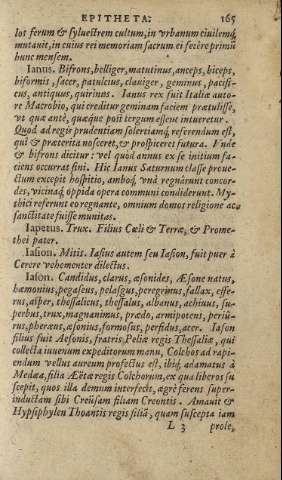 EPITHETA. 165
los ferum & syluestrem cultum, in vrbanum ciuilemq́;
mutauit, in cuius rei memoriam sacrum ei fecere primũ
hunc mensem.
Ianus. Bifrons, belliger, matutinus, anceps, biceps,
biformis, sacer, patulcius, clauiger, geminus, pacifi-
cus, antiquus, quirinus. Ianus rex fuit Italiæ auto-
re Macrobio, qui creditur geminam faciem prætulisse,
vt quæ antè, quæq́ue post tergum essent intueretur.
Quod ad regis prudentiam solertiamq́; referendum est,
qui & præterita nosceret, & prospiceret futura. Vnde
& bifrons dicitur: vel quod annus ex se initium fa-
ciens occurrat fini. Hic Ianus Saturnum classe proue-
ctum excepit hospitio, amboq́; vnà regnârunt concor-
des, vicinaq́; oppida opera communi condiderunt. My-
thici referunt eo regnante, omnium domos religione ac
sanctitate fuisse munitas.
Iapetus. Trux. Filius Cœli & Terræ, & Prome-
thei pater.
Iasion. Mitis. Iasius autem seu Iasion, fuit puer à
Cerere vehementer dilectus.
Iason. Candidus, clarus, æsonides, Æsone natus,
hæmonius, pegaseus, pelasgus, peregrinus, fallax, effe-
rus, asper, thessalicus, thessalus, albanus, achiuus, su-
perbus, trux, magnanimus, prædo, armipotens, periu-
rus, pheræus, æsonius, formosus, perfidus, acer. Iason
filius fuit Aesonis, fratris Peliæ regis Thessaliæ, qui
collecta iuuenum expeditorum manu, Colchos ad rapi-
endum vellus aureum profectus est, ibiq́; adamatus à
Medæa, filia Aëtæ regis Colchorum, ex qua liberos su
scepit, quos illa demum interfecit, ægrè ferens super-
inductam sibi Creüsam filiam Creontis. Amauit &
Hypsiphylen Thoantis regis filiã, quam suscepta iam
L 3 prole,